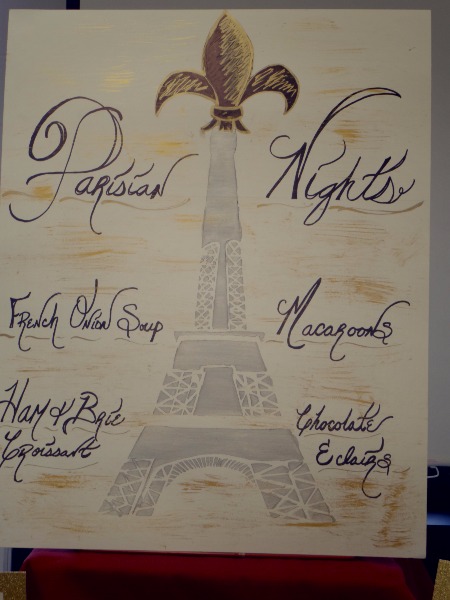 Parisian Nights
French Onion Soup
Macaroons
Ham & Brie
Croissant
Chocolate
Eclairs